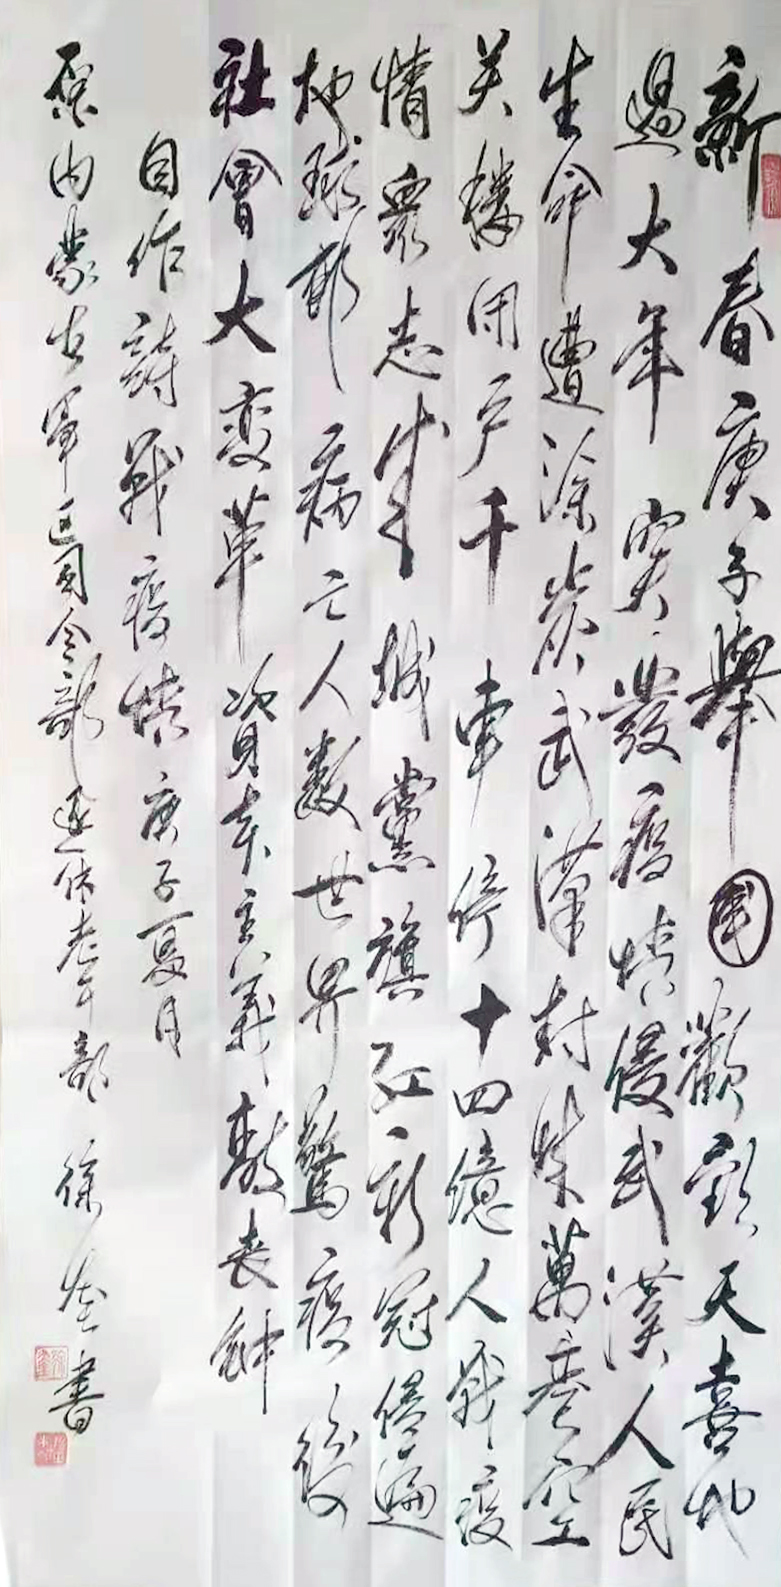 新春庚子舉国歡欢天喜地
過大年突發疫情侵武漢人民
生命遭涂炭武漢封城萬巷空
关樓闭户千車停十四億人战疫
情衆志成城黨旗红新冠侵遍
地球村病亡人數世界驚疫後
社會大变革資本主義敲丧钟
自作詩战疫情庚子夏月
原内蒙古军区司令部退休老干部徐書